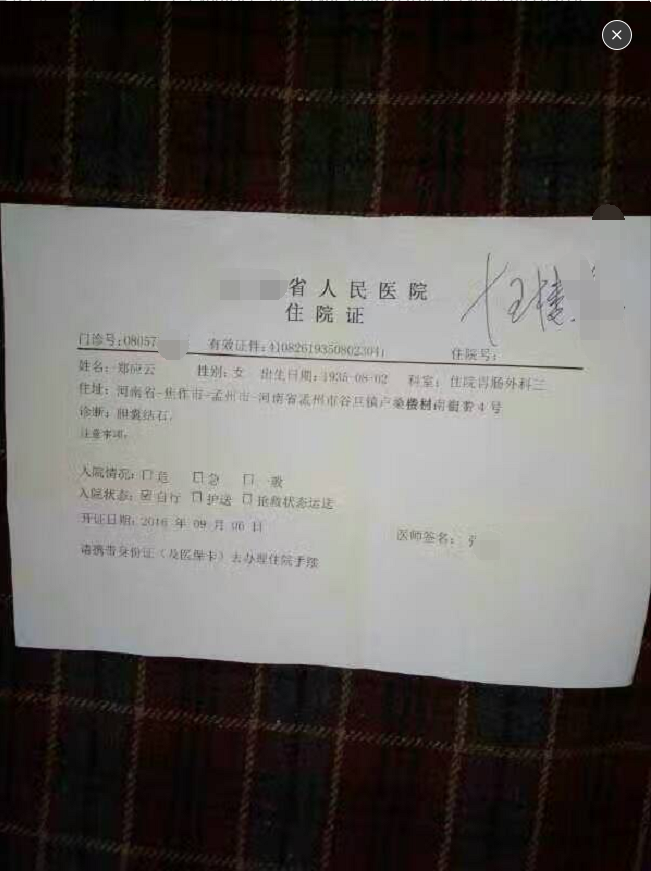 省人民医院
住院证
门诊号:08057 有效证件: 住院号:
姓名: 郑应云 性别: 女 出生日期: 1935-08-02 科室: 住院胃肠外科三
住址: 河南省-焦作市-孟州市-河南省孟州市谷旦镇卢 4号
诊断: 胆囊结石.
注意事项:
入院情况: □危 □急 □一般
入院状态: ☑自行 □护送 □抢救状态运送
开证日期: 2016 年 09 月 06 日
医师签名:
请携带身份证(及医保卡)去办理住院手续